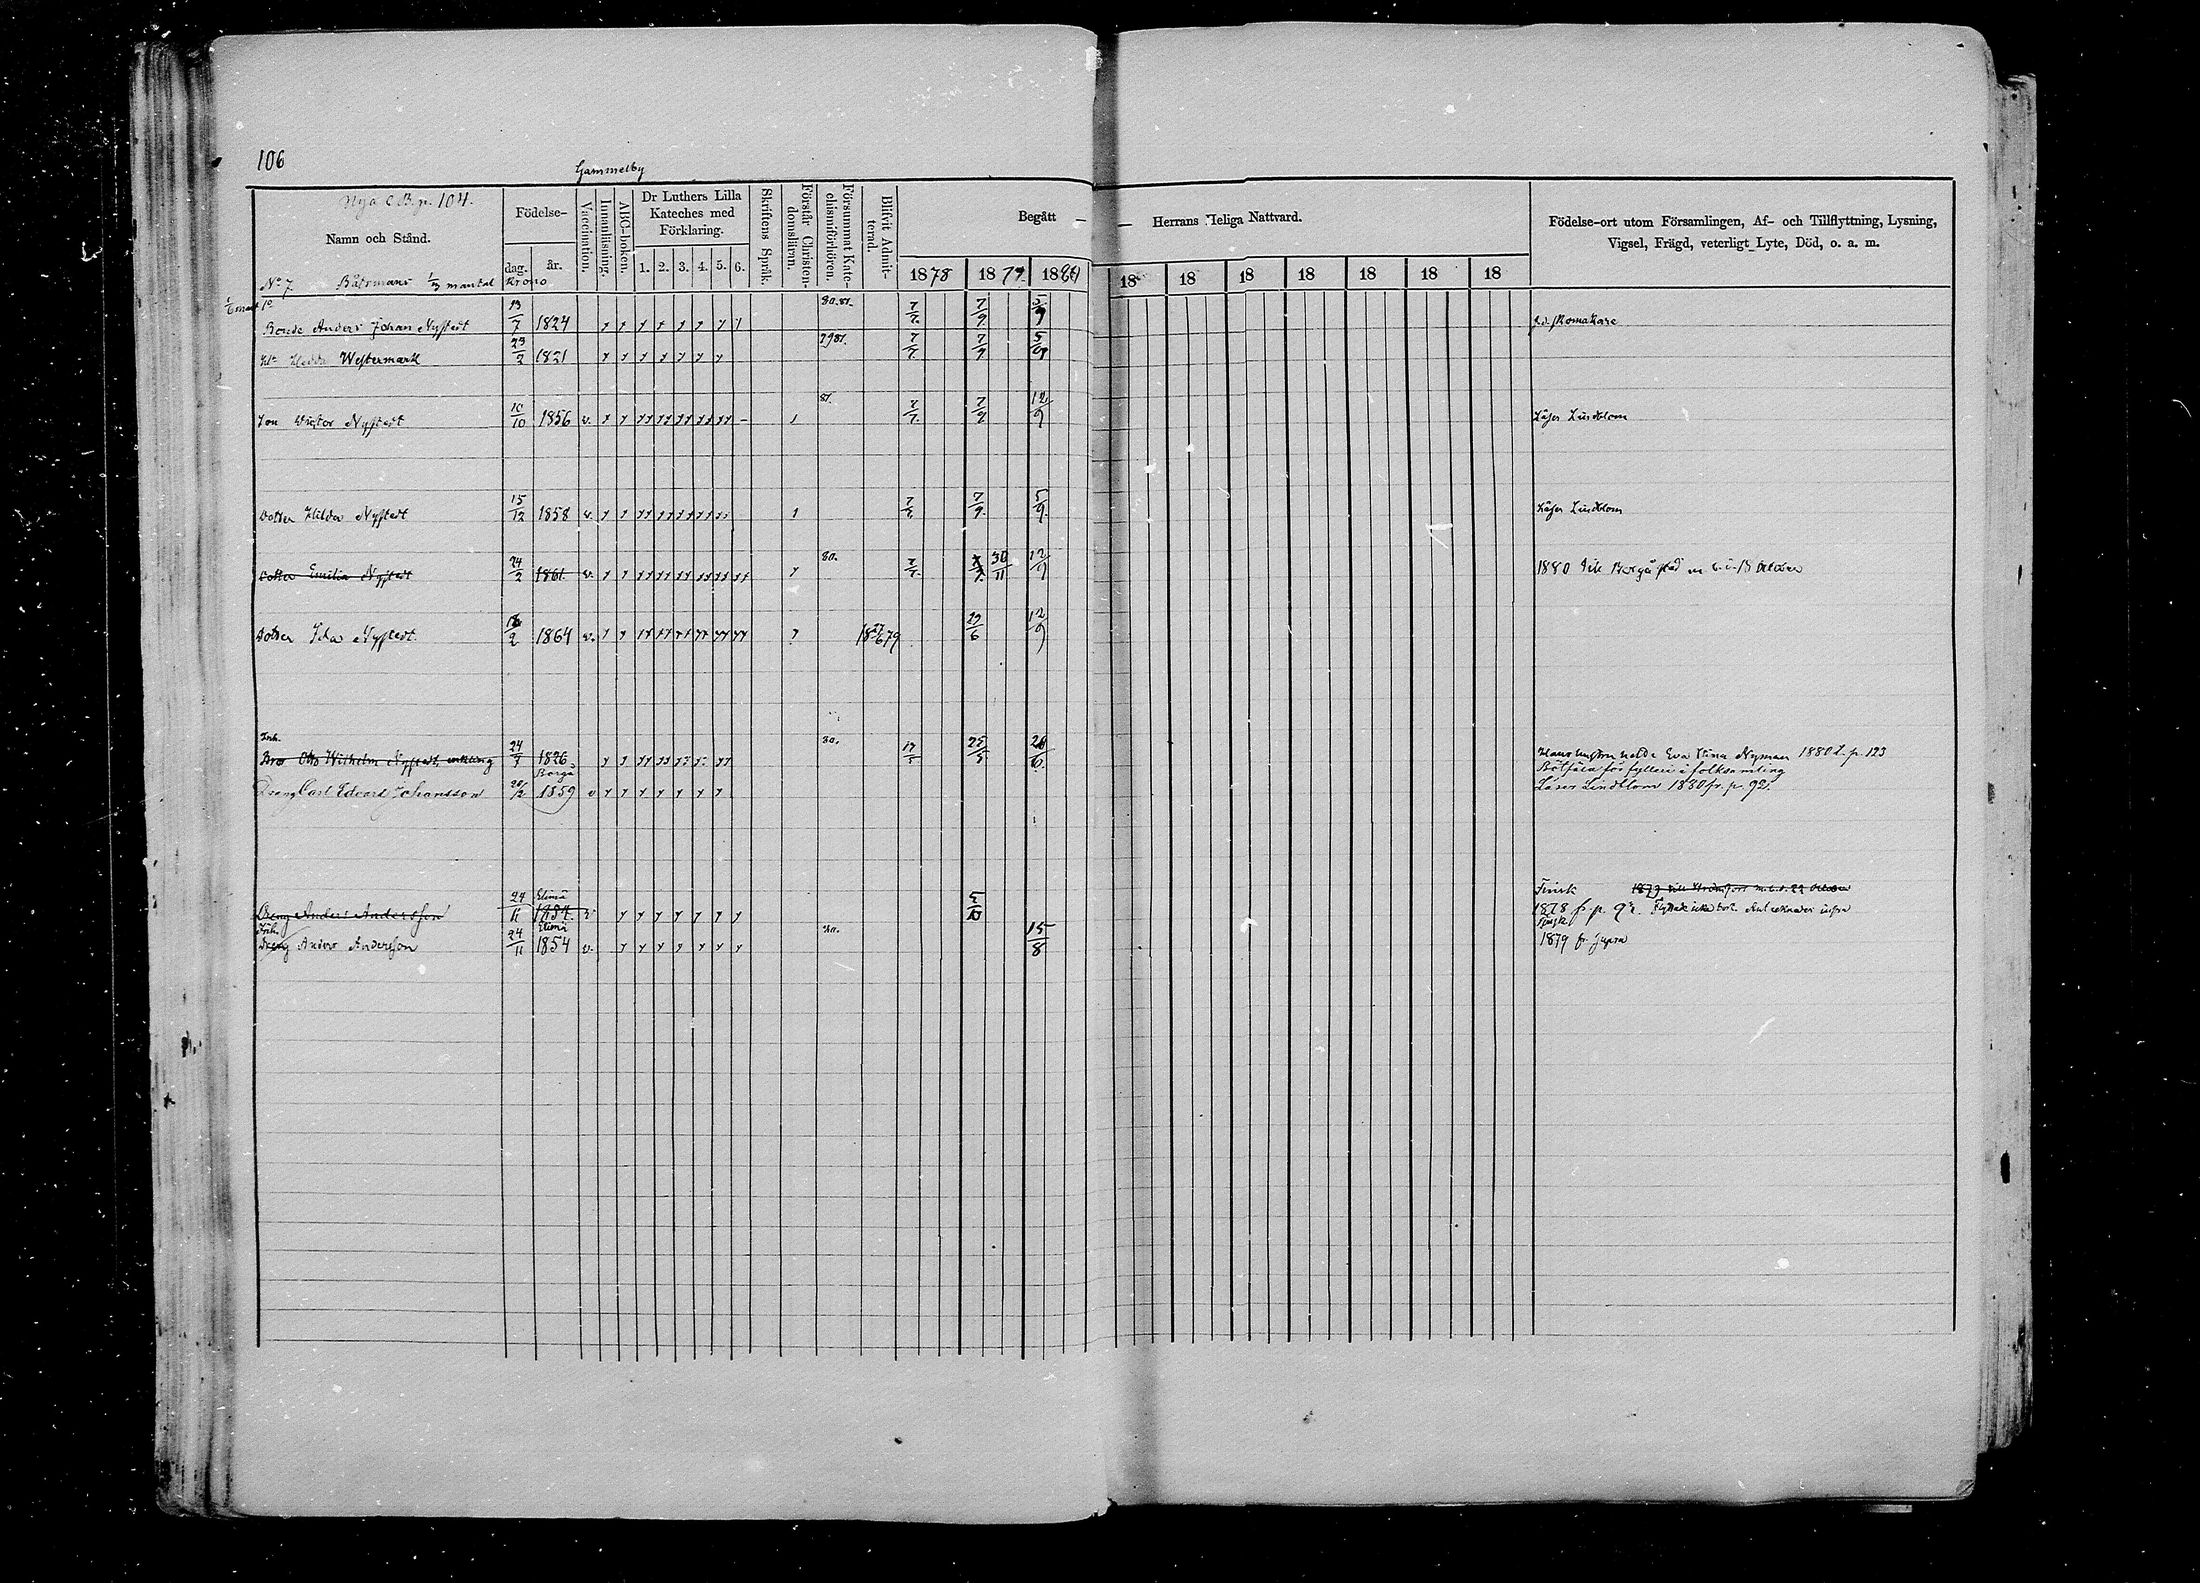 106
Gammelby
Nya C.B. p. 104.
Namn och Stånd.
Födelse-
dag. år.
Vaccination.
Innanläsning.
ABC-boken.
Dr Luthers Lilla Kateches med Förklaring.
1. 2. 3. 4. 5. 6.
Skriftens Språk.
Förstår Christendomsläran.
Försummat Katechismiförhören.
Blifvit Admitterad.
Begått — — Herrans Heliga Nattvard.
1878 1879. 1880 18 18 18 18 18 18 18
Födelse-ort utom Församlingen, Af- och Tillflyttning, Lysning,
Vigsel, Frägd, veterligt Lyte, Död, o. a. m.
No 7 Båtsmans 1/3 mantal Krono
Bonde Anders Johan Nystedt 13/7 1824 80.81. 7/7. 7/9. 5/9 f.d. skomakare
Hu Hedda Westermark 23/2 1821 7981. 7/7. 7/9. 5/9
Son Victor Nystedt 10/10 1856 v. 81. 7/7. 7/9. 12/9 Läser Lindblom
Dotter Hilda Nystedt 15/12 1858 v. 7/7. 7/9. 5/9. Läser Lindblom
Dotter Emilia Nystedt 24/2 1861. v. 80. 7/7. 7/9. 30/11 12/9 1880 till Borgå stad m. b. d. 18 October
Dotter Ida Nystedt 1864 v. 18 27/6 79 29/6 12/9
Inh.
Bro Otto Wilhelm Nystedt, enkling 24/7 1826 80. 25/5 Eva Stina Nyman 1880 t. p. 123
Bötfäld för fylleri i folksamling
Dräng Carl Edvard Johansson Borgå 1859 v Läser Lindblom 1880 fr. p. 92.
Dreng Anders Andersson 24/11 Elimä 1854 v 5/10 Finsk 1879 till Strömfors m. b. d. 22 October
1878 fr. p. 92. Flyttade icke bort. Antecknades infra
Inh.
Dreng Anders Andersson 24/11 Elimä 1854 v. 80. 15/8 Finsk
1879 fr. supra